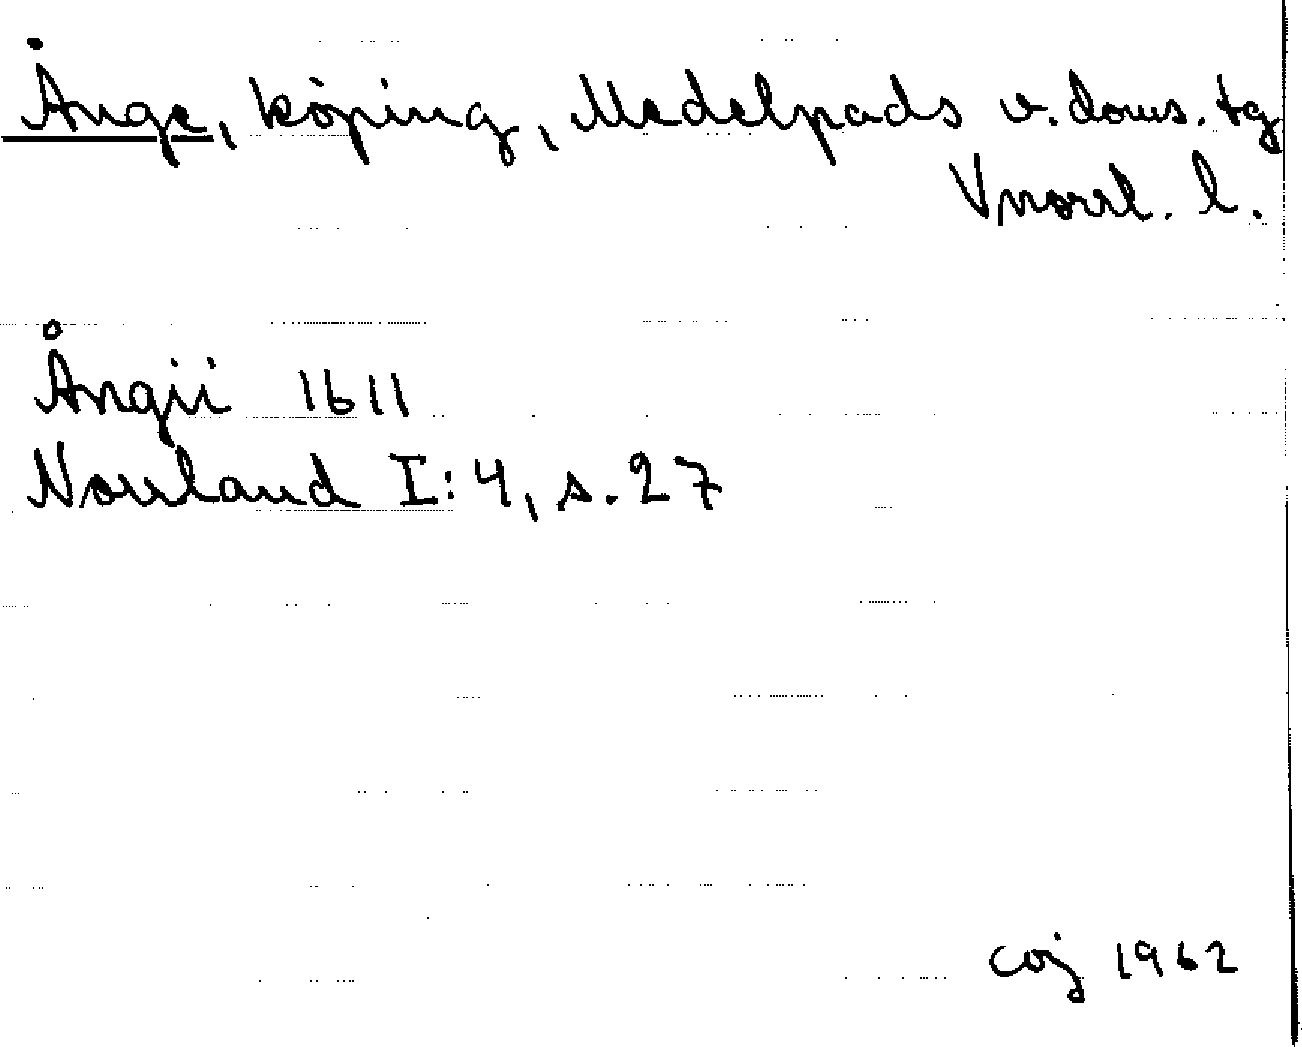 Ånge, köping, Medelpads v. doms. tg
Vnorrl. l.
Ångii 1611
Norrland I:4, s. 27
coj 1962